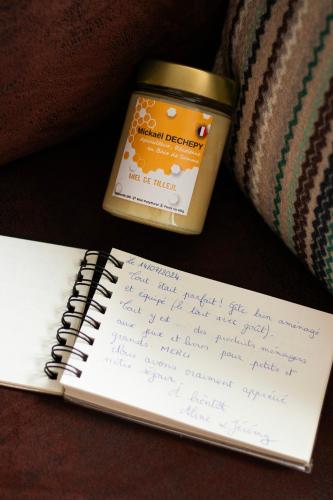 Mickaël DECHEPY
Apiculteur, Récoltant
en Baie de Somme
MIEL DE TILLEUL
Le 14/07/2024
Tout était parfait! Gîte bien aménagé
et équipé (le tout avec goût).
Tout y est ... des produits ménagers
aux jeux et livres pour petits et
grands. MERCI
Nous avons vraiment apprécié
notre séjour.
A bientôt
Aline & Jérémy